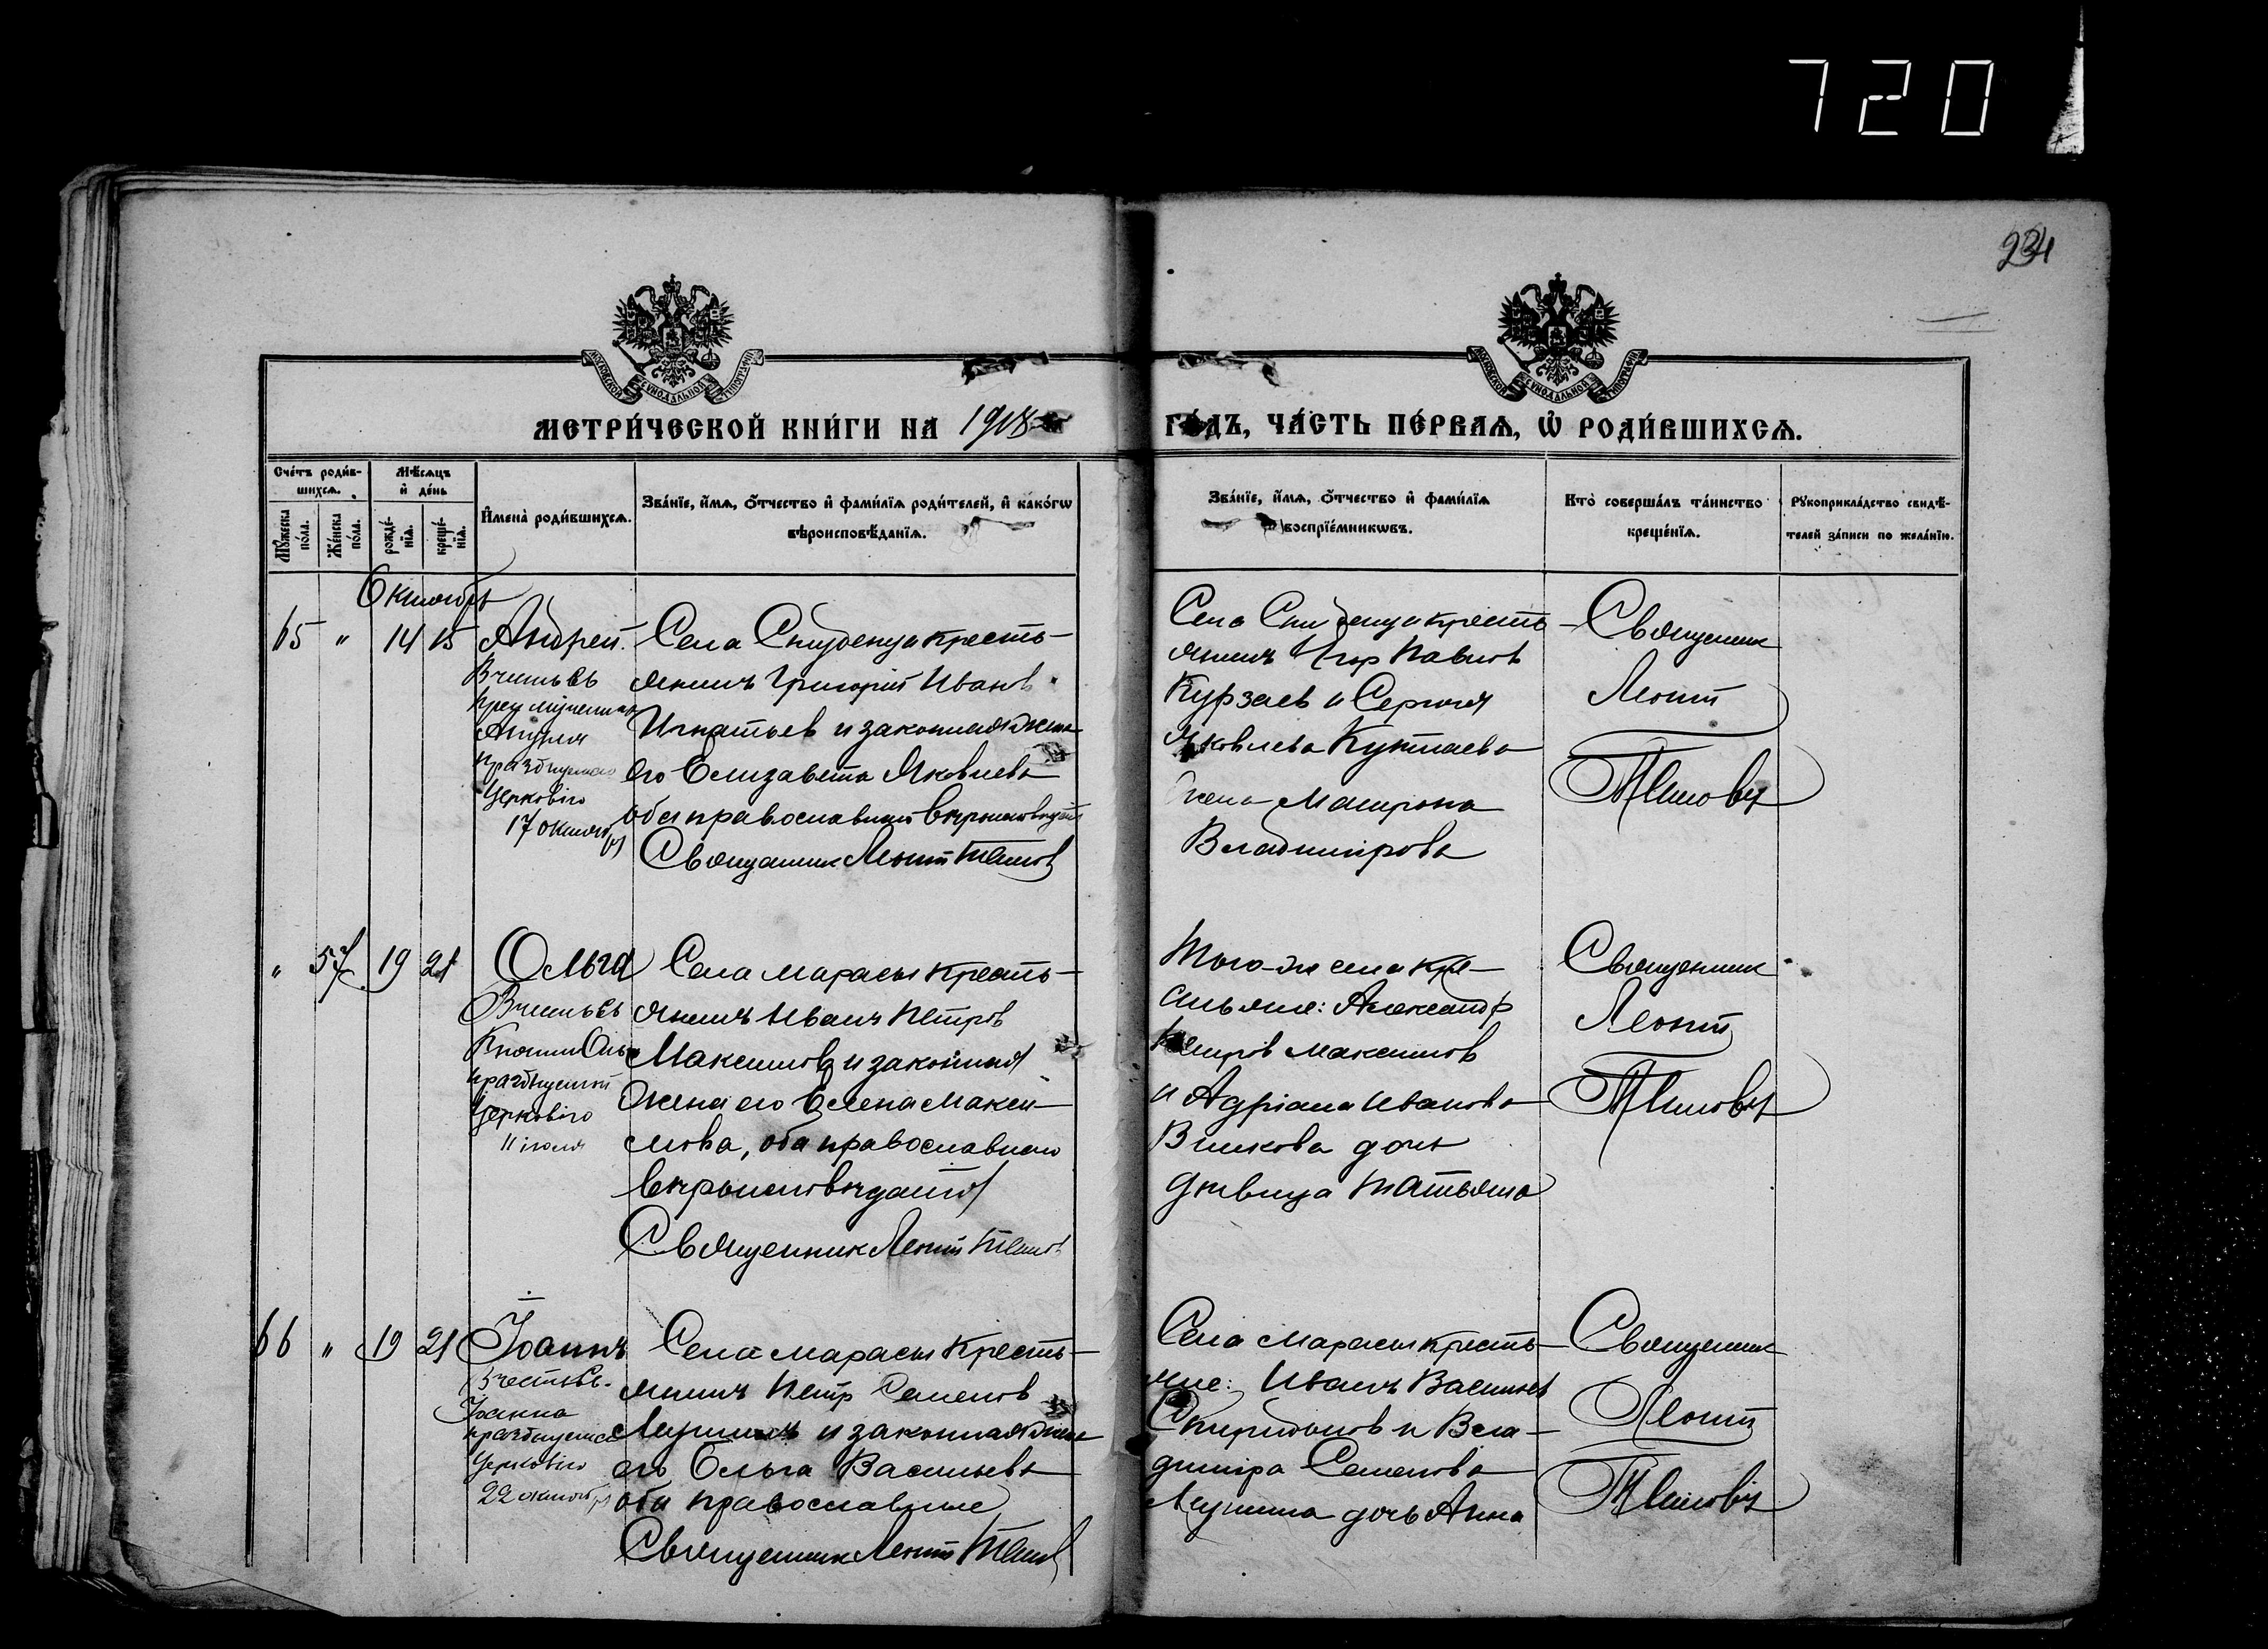 720
234
МОСКОВСКОЙ СѴНОДАЛЬНОЙ ТИПОГРАФІИ
МОСКОВСКОЙ СѴНОДАЛЬНОЙ ТИПОГРАФІИ
МЕТРИ́ЧЕСКОЙ КНИ́ГИ НА 1918
ГО́ДЪ, ЧА́СТЬ ПЕ́РВАѦ, Ѡ҆ РОДИ́ВШИХСѦ.
Сче́тъ роди́в-
шихсѧ.
Мꙋ́жеска по́ла.
Же́нска по́ла.
Мѣ́сѧцъ
и҆ де́нь
рожде́-
нїѧ.
креще́-
нїѧ.
И҆мена̀ роди́вшихсѧ.
Зва́нїе, и҆́мѧ, ѻ҆́тчество и҆ фами́лїѧ роди́телей, и҆ како́гѡ
вѣроисповѣ́данїѧ.
Зва́нїе, и҆́мѧ, ѻ҆́тчество и҆ фами́лїѧ
воспрїе́мникѡвъ.
Кто̀ соверша́лъ та́инство
креще́нїѧ.
Рꙋкоприкла́дство свидѣ́-
телей за́писи по жела́нїю.
Октябрь
65 " 14 15 Андрей.
В честь св
Андрея
празднуемаго
Церковію
17 октября
Села Студенца кресть-
янинъ Григорій Иванов
Игнатьев и законная жена
его Елизавета Яковлева
оба православнаго вѣроисповѣданія
Священник Леонтій
Села Студенца кресть-
янинъ Егор Павлов
Курзаев и Сергия
Яковлева
жена Матрона
Владимирова
Священник
Леонтій
" 57 19 21 Ольга
В честь св
Княгини Ольги
празднуемой
Церковію
11 іюля
Села Марасы кресть-
янинъ Иванъ Петров
Максимов и законная
жена его Елена Макси-
мова, оба православнаго
вѣроисповѣданія
Священник Леонтій
Того-же села кре-
стьяне: Александр
Петров Максимов
и Адріана Иванова
дочь
дѣвица Татьяна
Священник
Леонтій
66 " 19 21 Іоаннъ
В честь св.
Іоанна
празднуемаго
Церковію
22 октября
Села Марасы кресть-
янинъ Петр Семенов
Лушинъ и законная жена
его Ольга Васильева
оба православные
Священник Леонтій
Села Марасы кресть-
яне: Иванъ Васильев
Спиридонов и Вла-
димира Семенова
Лушина дочь Анна
Священник
Леонтій